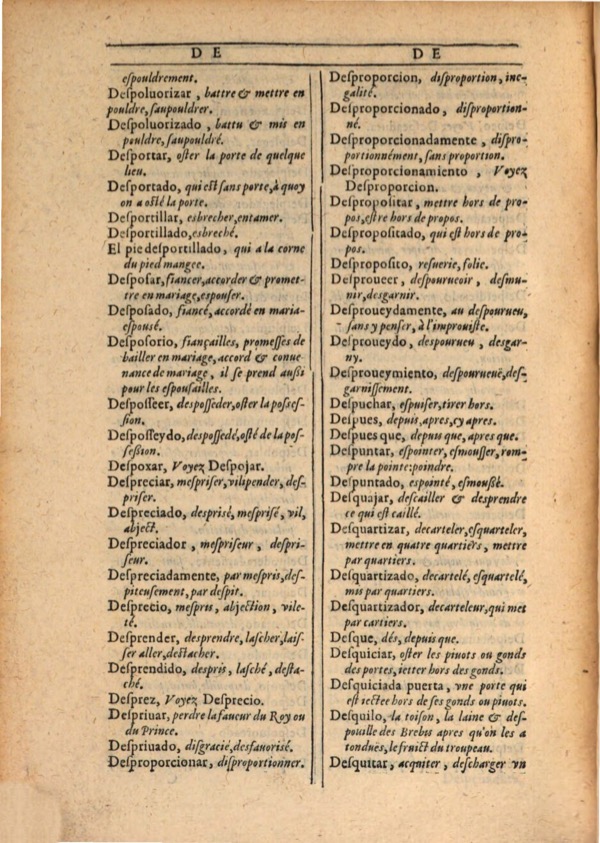 DE
eſpouldrement.
Deſpoluorizar, battre & mettre en
pouldre, ſaupouldrer.
Deſpoluorizado, battu & mis en
pouldre, ſaupouldré.
Deſportar, oſter la porte de quelque
lieu.
Deſportado, qui eſt ſans porte, à quoy
on a oſté la porte.
Deſportillar, esbrecher, entamer.
Deſportillado, esbreché.
El pie deſportillado, qui a la corne
du pied mangee.
Deſpoſar, fiancer, accorder & promet-
tre en mariage, eſpouſer.
Deſpoſado, fiancé, accordé en maria-
eſpouſé.
Deſpoſorio, fiançailles, promeſſes de
bailler en mariage, accord & conue-
nance de mariage, il ſe prend auſsi
pour les eſpouſailles.
Deſpoſſeer, deſpoſſeder, oſter la poſseſ-
ſion.
Deſpoſſeydo, deſpoſſedé, oſté de la poſ-
ſeſsion.
Deſpoxar, Voyez Deſpojar.
Deſpreciar, meſpriſer, vilipender, deſ-
priſer.
Deſpreciado, deſpriſé, meſpriſé, vil,
abject.
Deſpreciador, meſpriſeur, deſpri-
ſeur.
Deſpreciadamente, par meſpris, deſ-
piteuſement, par deſpit.
Deſprecio, meſpris, abjection, vile-
té.
Deſprender, deſprendre, laſcher, laiſ-
ſer aller, deſtacher.
Deſprendido, deſpris, laſché, deſta-
ché.
Deſprez, Voyez Deſprecio.
Deſpriuar, perdre la faueur du Roy ou
du Prince.
Deſpriuado, diſgracié, desfauoriſé.
Deſproporcionar, diſproportionner.
DE
Deſproporcion, diſproportion, ine-
galité.
Deſproporcionado, diſproportion-
né.
Deſproporcionadamente, diſpro-
portionnément, ſans proportion.
Deſproporcionamiento, Voyez
Deſproporcion.
Deſpropoſitar, mettre hors de pro-
pos, eſtre hors de propos.
Deſpropoſitado, qui eſt hors de pro-
pos.
Deſpropoſito, reſuerie, folie.
Deſproueer, deſpourueoir, deſmu-
nir, deſgarnir.
Deſproueydamente, au deſpourueu,
ſans y penſer, à l'improuiſte.
Deſproueydo, deſpourueu, deſgar-
ny.
Deſproueymiento, deſpourueuë, deſ-
garniſſement.
Deſpuchar, eſpuiſer, tirer hors.
Deſpues, depuis, apres, cy apres.
Deſpues que, depuis que, apres que.
Deſpuntar, eſpointer, eſmouſſer, rom-
pre la pointe: poindre.
Deſpuntado, eſpointé, eſmouſsé.
Deſquajar, deſcailler & deſprendre
ce qui eſt caillé.
Deſquartizar, decarteler, eſquarteler,
mettre en quatre quartiers, mettre
par quartiers.
Deſquartizado, decartelé, eſquartelé,
mis par quartiers.
Deſquartizador, decarteleur, qui met
par cartiers.
Deſque, dés, depuis que.
Deſquiciar, oſter les piuots ou gonds
des portes, ietter hors des gonds.
Deſquiciada puerta, vne porte qui
eſt iectee hors de ſes gonds ou piuots.
Deſquilo, la toiſon, la laine & deſ-
pouille des Brebis apres qu'on les a
tonduës, le fruict du troupeau.
Deſquitar, acquiter, deſcharger vn